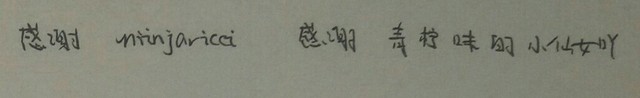 感谢 ninjaricci 感谢 青柠味的小仙女吖